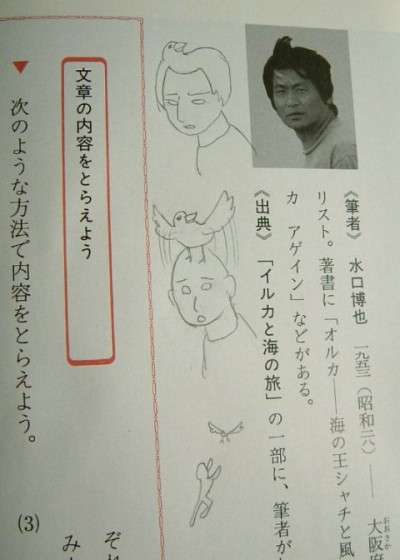 《筆者》 水口博也 一九五三(昭和二八)―― 大阪
おおさか
リスト。著書に「オルカ――海の王シャチと風
カ アゲイン」などがある。
《出典》 「イルカと海の旅」の一部に、筆者が
文章の内容をとらえよう
▼ 次のような方法で内容をとらえよう。
(3)